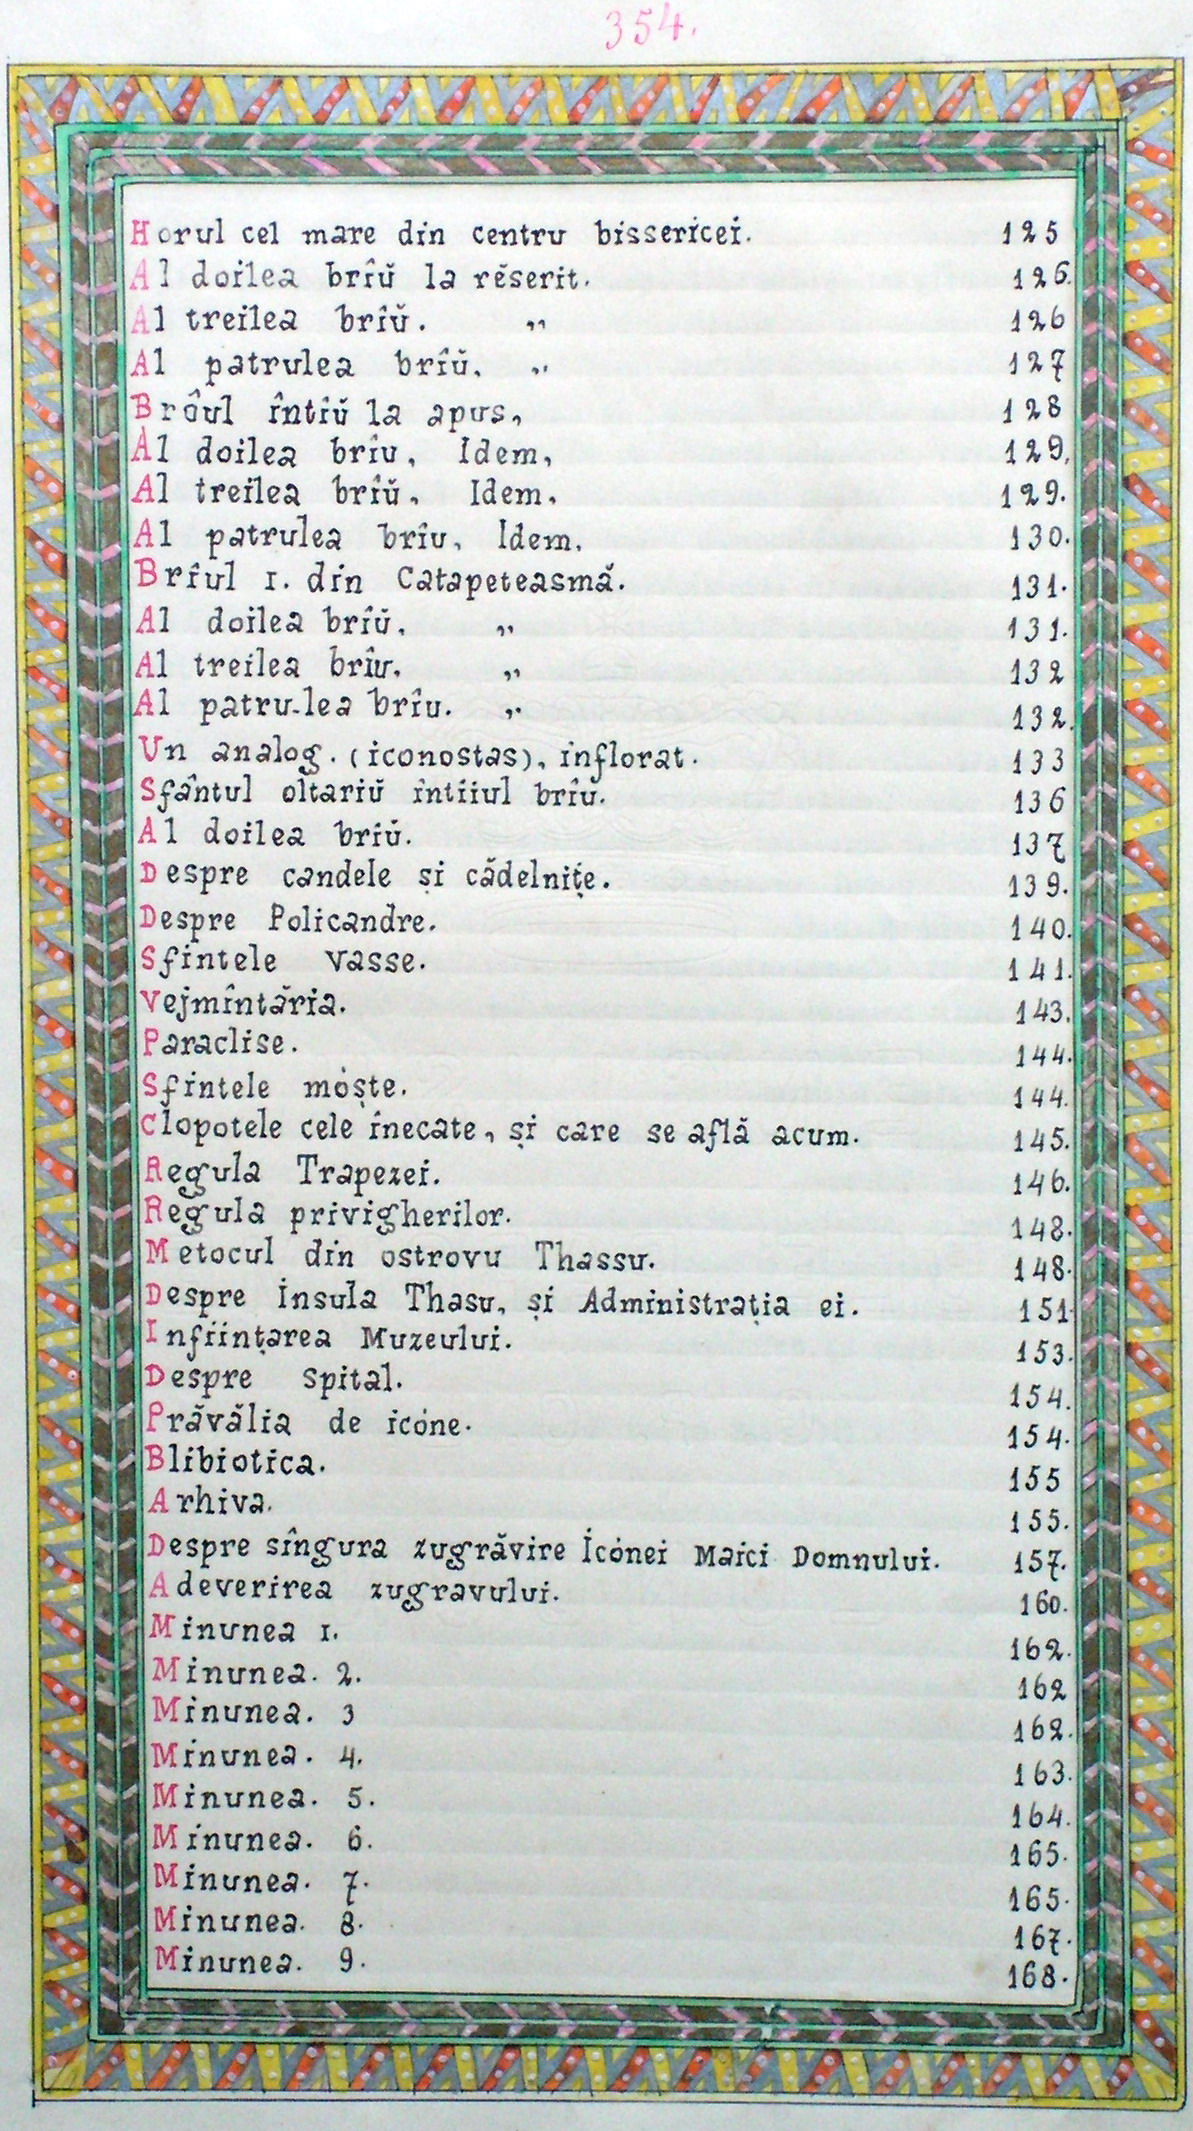 354.
Horul cel mare din centru bissericei. 125
Al doilea brîŭ la rĕserit. 126.
Al treilea brîŭ. „ 126
Al patrulea brîŭ. „ 127
Brâul întîŭ la apus, 128
Al doilea brîu, Idem, 129,
Al treilea brîŭ, Idem. 129.
Al patrulea brîu, Idem. 130.
Brîul 1. din Catapeteasmă. 131.
Al doilea brîŭ. „ 131.
Al treilea brîu. „ 132
Al patru-lea brîu. „ 132.
Un analog. (iconostas), inflorat. 133
Sfântul oltariŭ întiiul brîu. 136
Al doilea briŭ. 137
Despre candele și cădelnițe. 139.
Despre Policandre. 140.
Sfintele vasse. 141.
Vejmîntăria. 143.
Paraclise. 144.
Sfintele móște. 144.
Clopotele cele înecate, și care se află acum. 145.
Regula Trapezei. 146.
Regula privigherilor. 148.
Metocul din ostrovu Thassu. 148.
Despre Insula Thasu, și Administrația ei. 151.
Inființarea Muzeului. 153.
Despre spital. 154.
Prăvălia de icóne. 154.
Blibiotica. 155
Arhiva. 155.
Despre sîngura zugrăvire Icónei Maici Domnului. 157.
Adeverirea zugravului. 160.
Minunea 1. 162.
Minunea. 2. 162
Minunea. 3 162.
Minunea. 4. 163.
Minunea. 5. 164.
Minunea. 6. 165.
Minunea. 7. 165.
Minunea. 8. 167.
Minunea. 9. 168.